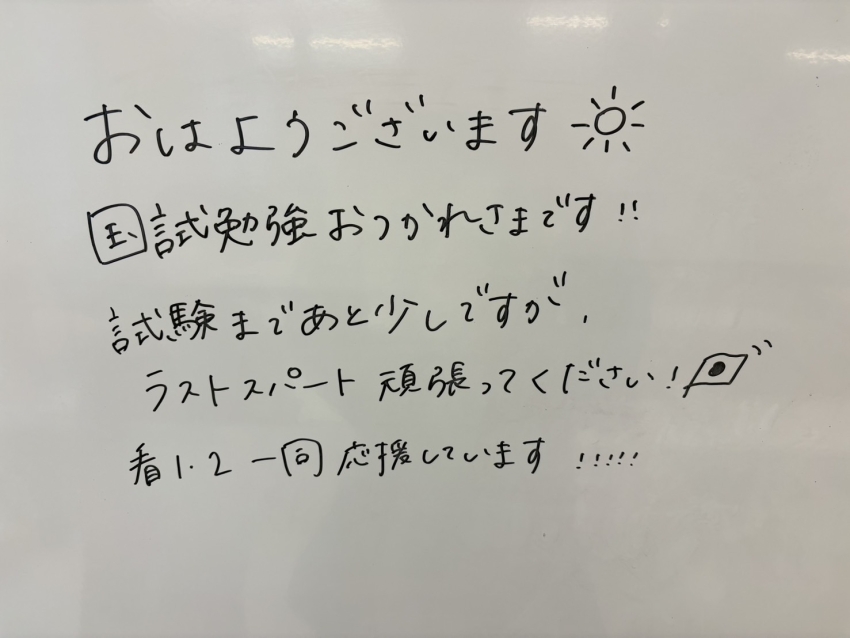 おはようございます
国試勉強おつかれさまです!!
試験まであと少しですが、
ラストスパート頑張ってください!
看1.2一同応援しています!!!!!